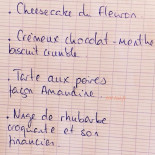 . Cheesecake du fleuron
. Crémeux chocolat - menthe
biscuit crumble
. Tarte aux poires
façon Amandine
. Nage de rhubarbe
croquante et son
financier.